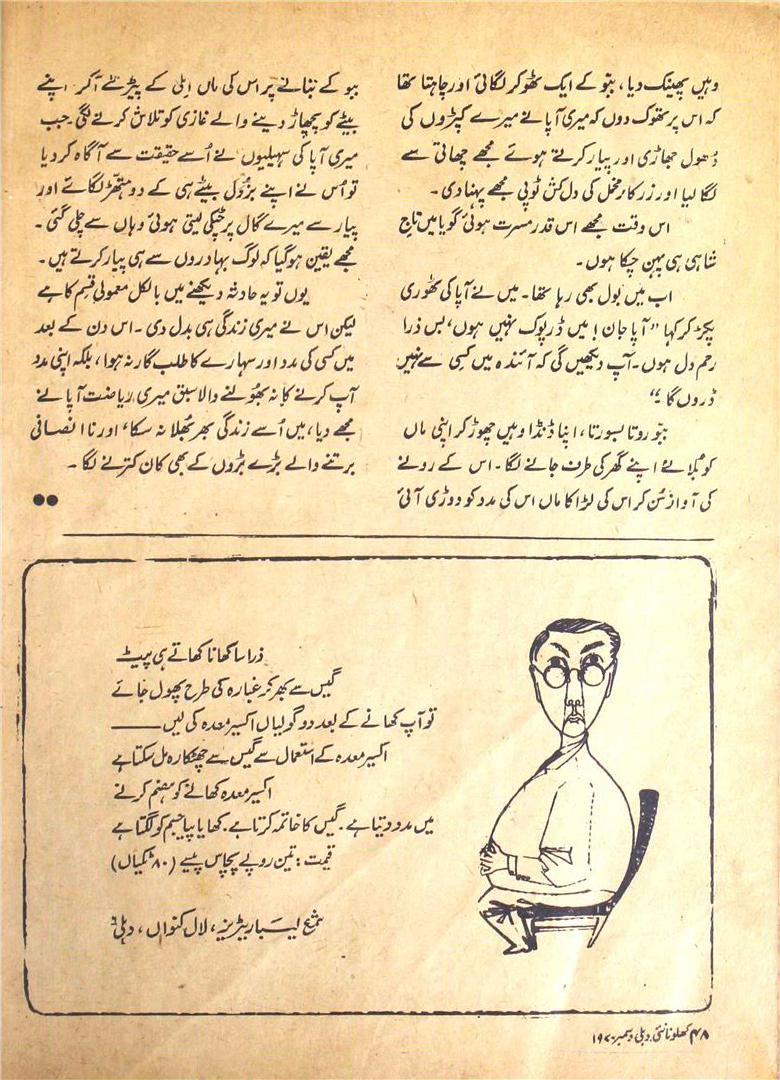 وہیں پھینک دیا، ببّو کے ایک ٹھوکر لگائی اور چاہتا تھا
کہ اس پر تھوک دوں کہ میری آپا نے میرے کپڑوں کی
دُھول جھاڑی اور پیار کرتے ہوئے مجھے چھاتی سے
لگا لیا اور زرکار مخمل کی دل کش ٹوپی مجھے پہنا دی۔
اس وقت مجھے اس قدر مسرت ہوئی گویا میں تاجِ
شاہی ہی پہن چکا ہوں۔
اب میں بول بھی رہا تھا۔ میں نے آپا کی ٹھوری
پکڑ کر کہا ”آپا جان! میں ڈرپوک نہیں ہوں، بس ذرا
رحم دل ہوں۔ آپ دیکھیں گی کہ آئندہ میں کسی سے نہیں
ڈروں گا۔“
ببّو روتا بسورتا، اپنا ڈنڈا وہیں چھوڑ کر اپنی ماں
کو بُلانے اپنے گھر کی طرف جانے لگا۔ اس کے رونے
کی آواز سُن کر اس کی لڑاکا ماں اس کی مدد کو دوڑی آئی
ببو کے بتانے پر اس کی ماں اِملی کے پیڑ تلے آکر اپنے
بیٹے کو پچھاڑ دینے والے غازی کو تلاش کرنے لگی۔ جب
میری آپا کی سہیلیوں نے اُسے حقیقت سے آگاہ کر دیا
تو اُس نے اپنے بزدل بیٹے ہی کے دو تھپّڑ لگائے اور
پیار سے میرے گال پر چٹکی لیتی ہوئی وہاں سے چلی گئی۔
مجھے یقین ہوگیا کہ لوگ بہادروں سے ہی پیار کرتے ہیں۔
یوں تو یہ حادثہ دیکھنے میں بالکل معمولی قسم کا ہے
لیکن اس نے میری زندگی ہی بدل دی۔ اس دن کے بعد
میں کسی کی مدد اور سہارے کا طلب گار نہ ہوا، بلکہ اپنی مدد
آپ کرنے کا نہ بھولنے والا سبق میری ریاضت آپا نے
مجھے دیا، میں اُسے زندگی بھر بُھلا نہ سکا، اور نا انصافی
برتنے والے بڑے بڑوں کے بھی کان کترنے لگا۔
●●
ذرا سا کھانا کھاتے ہی پیٹ
گیس سے بھر کر غبارہ کی طرح پھول جائے
تو آپ کھانے کے بعد دو گولیاں اکسیر معدہ کی لیں ——
اکسیر معدہ کے استعمال سے گیس سے چھٹکارہ مل سکتا ہے
اکسیر معدہ کھانے کو ہضم کرنے
میں مدد دیتا ہے۔ گیس کا خاتمہ کرتا ہے۔ کھایا پیا جسم کو لگتا ہے
قیمت: تین روپے پچاس پیسے (۸۰ ٹکیاں)
شمع لیبارٹریز، لال کنواں، دہلی ۶
۴۸ کھلونا نئی دہلی دسمبر ۱۹۷۰